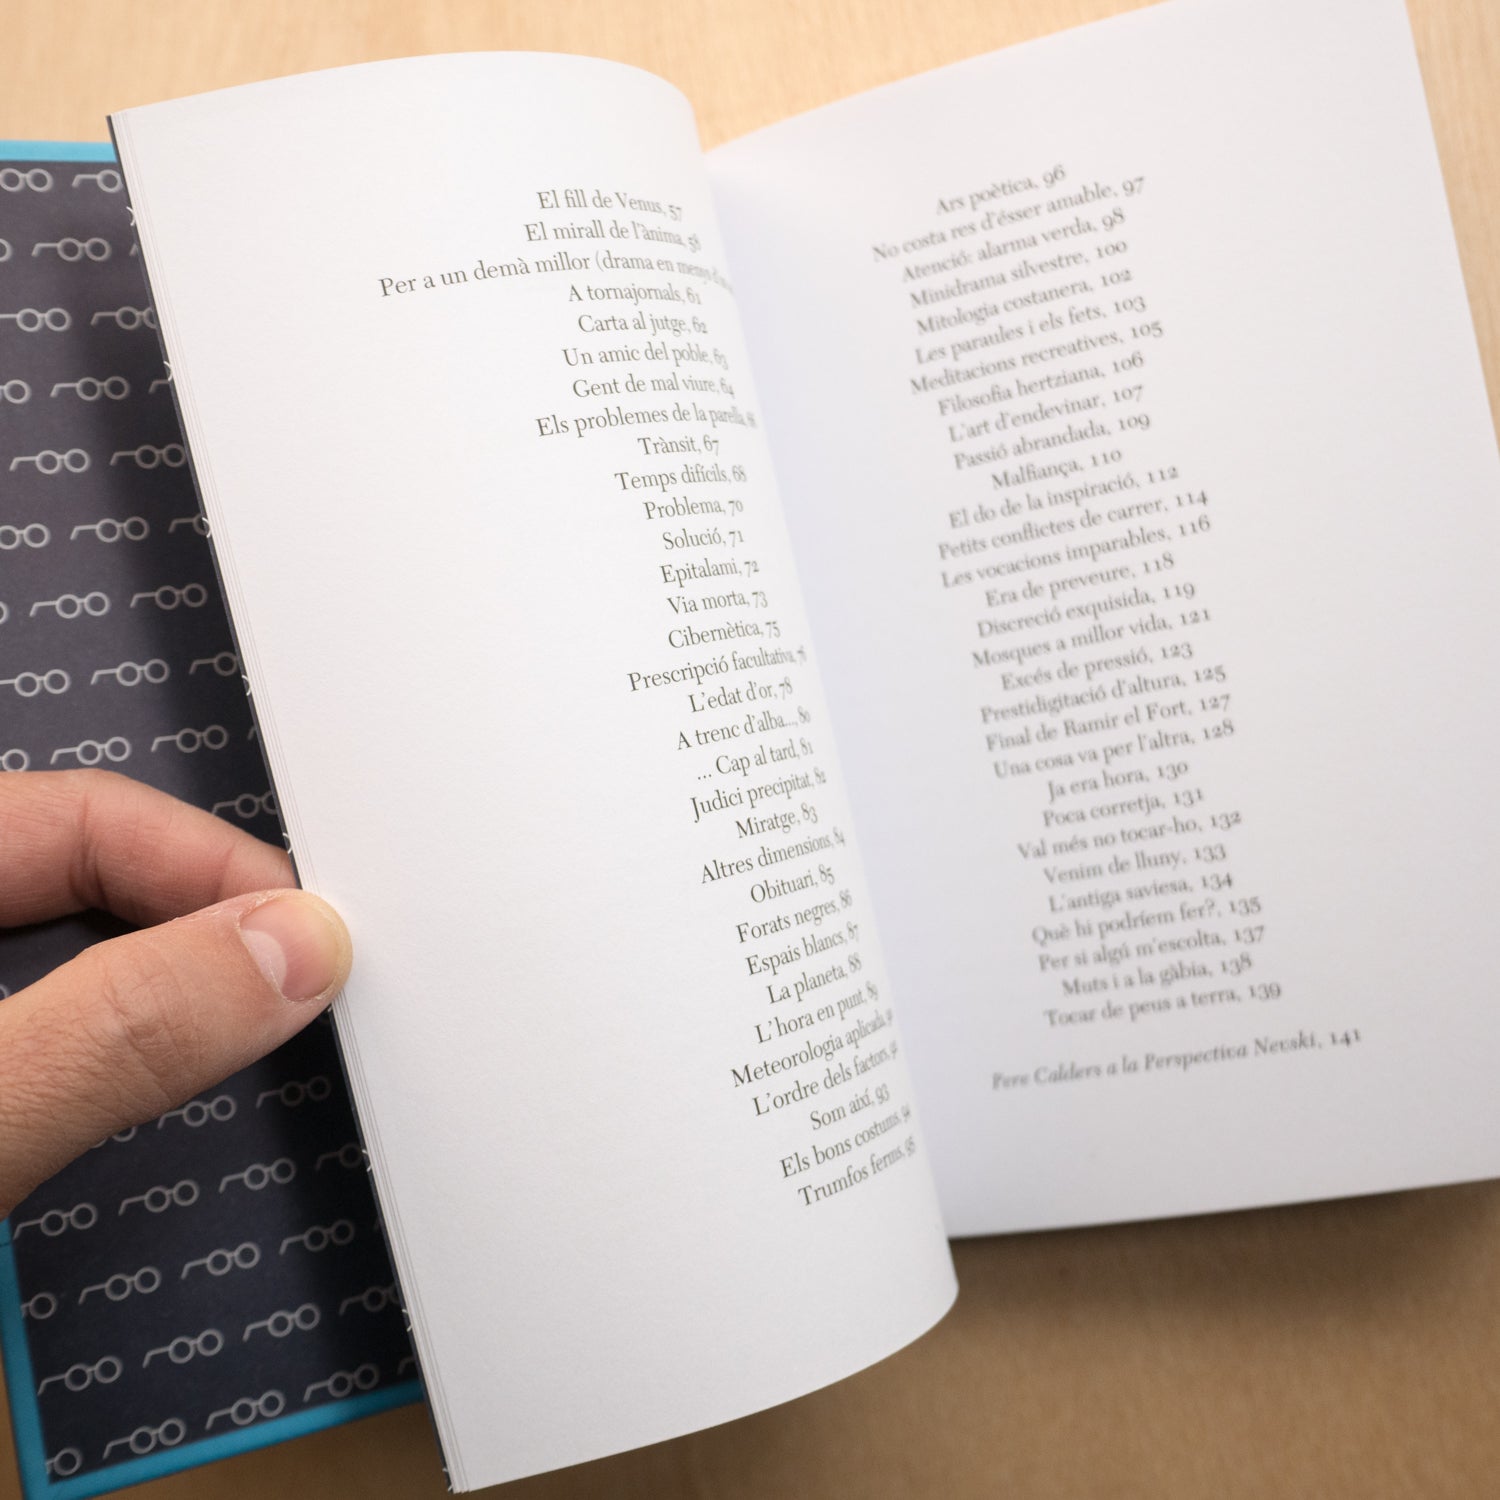 El fill de Venus, 57
El mirall de l'ànima, 58
Per a un demà millor (drama en menys
A tornajornals, 61
Carta al jutge, 62
Un amic del poble, 63
Gent de mal viure, 64
Els problemes de la parella, 66
Trànsit, 67
Temps difícils, 68
Problema, 70
Solució, 71
Epitalami, 72
Via morta, 73
Cibernètica, 75
Prescripció facultativa, 76
L'edat d'or, 78
A trenc d'alba..., 80
... Cap al tard, 81
Judici precipitat, 82
Miratge, 83
Altres dimensions, 84
Obituari, 85
Forats negres, 86
Espais blancs, 87
La planeta, 88
L'hora en punt, 89
Meteorologia aplicada,
L'ordre dels factors,
Som així, 93
Els bons costums, 94
Trumfos ferms, 95
Ars poètica, 96
No costa res d'ésser amable, 97
Atenció: alarma verda, 98
Minidrama silvestre, 100
Mitologia costanera, 102
Les paraules i els fets, 103
Meditacions recreatives, 105
Filosofia hertziana, 106
L'art d'endevinar, 107
Passió abrandada, 109
Malfiança, 110
El do de la inspiració, 112
Petits conflictes de carrer, 114
Les vocacions imparables, 116
Era de preveure, 118
Discreció exquisida, 119
Mosques a millor vida, 121
Excés de pressió, 123
Prestidigitació d'altura, 125
Final de Ramir el Fort, 127
Una cosa va per l'altra, 128
Ja era hora, 130
Poca corretja, 131
Val més no tocar-ho, 132
Venim de lluny, 133
L'antiga saviesa, 134
Què hi podríem fer?, 135
Per si algú m'escolta, 137
Muts i a la gàbia, 138
Tocar de peus a terra, 139
Pere Calders a la Perspectiva Nevski, 141